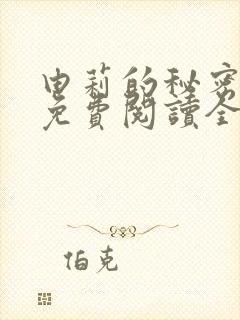 申莉的秘密
免費閱讀全
伯克